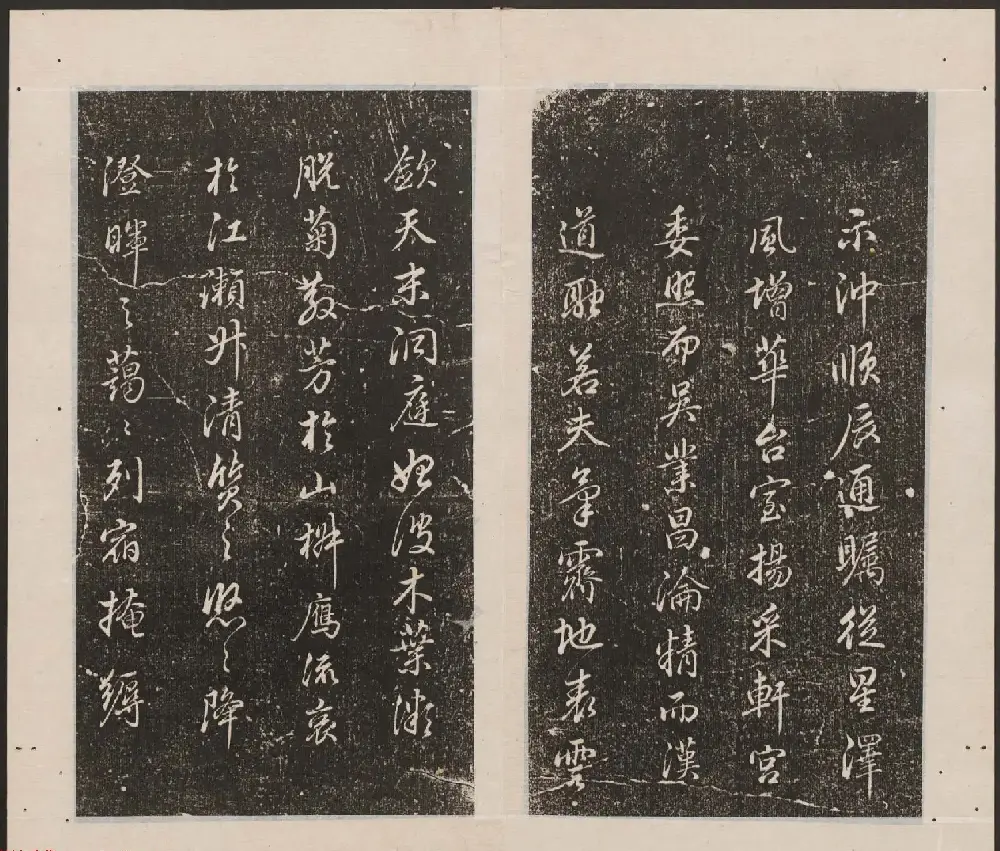 示沖順辰通矚從星澤
風增華台室揚采軒宮
委照而吳業昌淪精而漢
道融若夫氣霽地表雲
斂天末洞庭始波木葉微
脫菊散芳於山椒鴈流哀
於江瀨升清質之悠々降
澄暉之藹々列宿掩縟